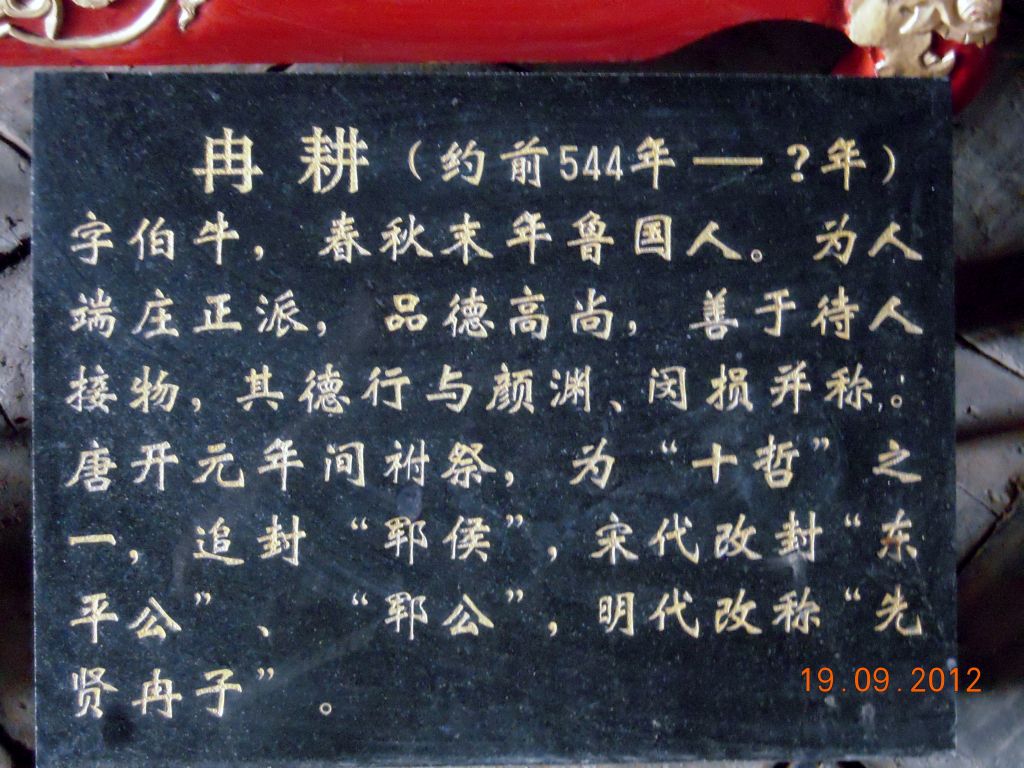 冉耕（约前544年——？年）
字伯牛，春秋末年鲁国人。为人
端庄正派，品德高尚，善于待人
接物，其德行与颜渊、闵损并称。
唐开元年间祔祭，为“十哲”之
一，追封“郓侯”，宋代改封“东
平公”、“郓公”，明代改称“先
贤冉子”。
19.09.2012